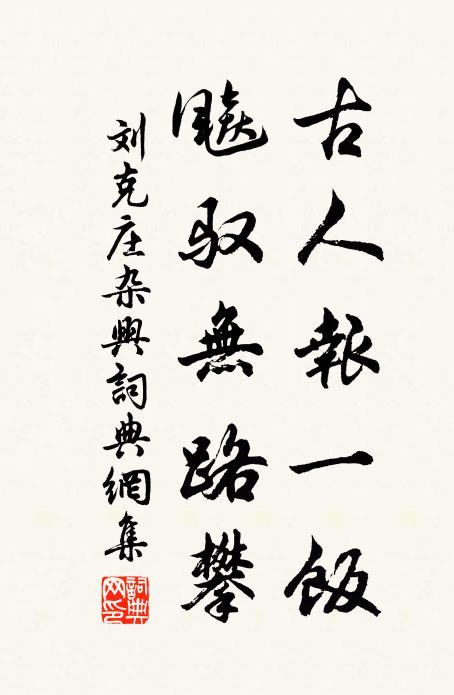 古人報一飯
飈馭無路攀
刘克庄杂興詞典網集
詞典网印